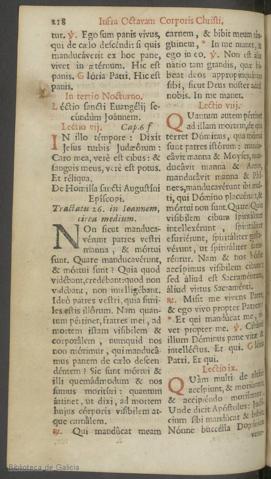 218 Infra Octavam Corporis Christi.
tur. ℣. Ego sum panis vivus,
qui de cælo descendi: si quis
manducaverit ex hoc pane,
vivet in æternum. Hic est
panis. Glória Patri. Hic est
panis.
In tertio Nocturno.
Léctio sancti Euangélij se-
cúndum Joánnem.
Lectio vij. Cap. 6. f
IN illo témpore: Dixit
Jesus turbis Judæórum:
Caro mea, verè est cibus: &
sanguis meus, verè est potus.
Et réliqua.
De Homilía sancti Augustíni
Epíscopi.
Tractatu 26. in Ioannem,
circa medium.
NOn sicut manduca-
vérunt patres vestri
manna, & mórtui
sunt. Quare manducavérunt,
& mórtui sunt? Quia quod
vidébant, credébant: quod non
vidébant, non intelligébant.
Ideò patres vestri, quia símí-
les estis illórum. Nam quan-
tum pértinet, fratres mei, ad
mortem istam visíbilem &
corporálem, nunquid nos
non mórimur, qui manducá-
mus panem de cælo descen-
déntem? Sic sunt mórtui &
illi quemádmodum & nos
sumus moritúri: quantum
áttinet, ut dixi, ad mortem
hujus córporis visíbilem at-
que carnálem.
℟. Qui mandúcat meam
carnem, & bibit meum sán-
guinem, * In me manet, &
ego in eo. ℣. Non est alia
natio tam grandis, quæ há-
beat deos appropinquántes
sibi, sicut Deus noster adest
nobis. In me manet.
Lectio viij.
QUantum autem pértinet
ad illam mortem, de qua
terret Dóminus, quia mórtui
sunt patres istórum: mandu-
cávit manna & Móyses, man-
ducávit manna & Aaron,
manducávit manna & Phí-
nees, manducavérunt ibi mul-
ti, qui Dómino placuérunt, &
mórtui non sunt. Quare? Quia
visíbilem cibum spirituáliter
intellexérunt, spirituáliter
esuriérunt, spirituáliter gusta-
vérunt, ut spirituáliter satia-
réntur. Nam & nos hódie
accépimus visíbilem cibum:
sed áliud est Sacraméntum,
áliud virtus Sacraménti.
℟. Misit me vivens Pater,
& ego vivo propter Patrem:
* Et qui mandúcat me, vi-
vet propter me. ℣. Cibávit
illum Dóminus pane vitæ &
intelléctus. Et qui. Glória
Patri. Et qui.
Lectio ix.
QUàm multi de altári
accípiunt, & moriúntur,
& accipiéndo moriúntur?
Unde dicit Apóstolus: Judí-
cium sibi mandúcat & bibit.
Nónne buccélla Domínica
Biblioteca de Galicia